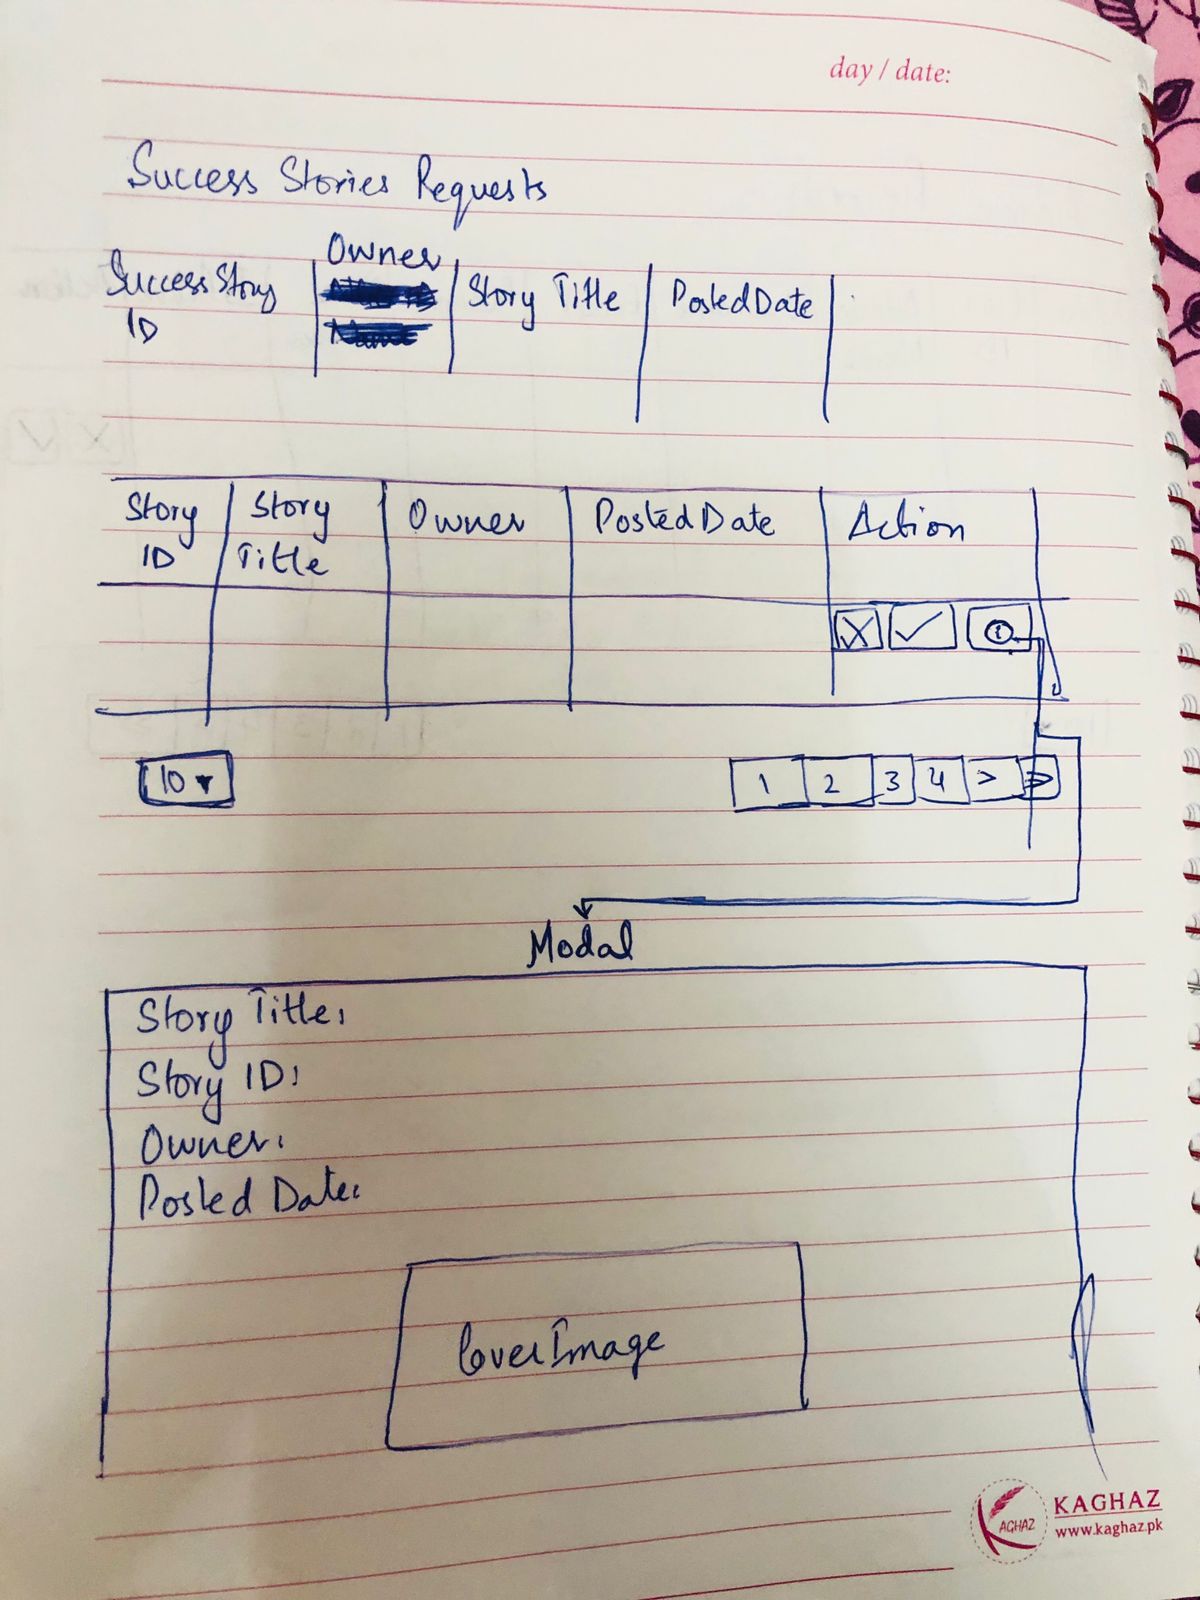 day / date:
Success Stories Requests
Owner
Success Story
ID
Story Title
Posted Date
Story
ID
Story
Title
Owner
Posted Date
Action
10
1 2 3 4 >
Modal
Story Title:
Story ID:
Owner:
Posted Date:
Cover Image
KAGHAZ
AGHAZ
www.kaghaz.pk